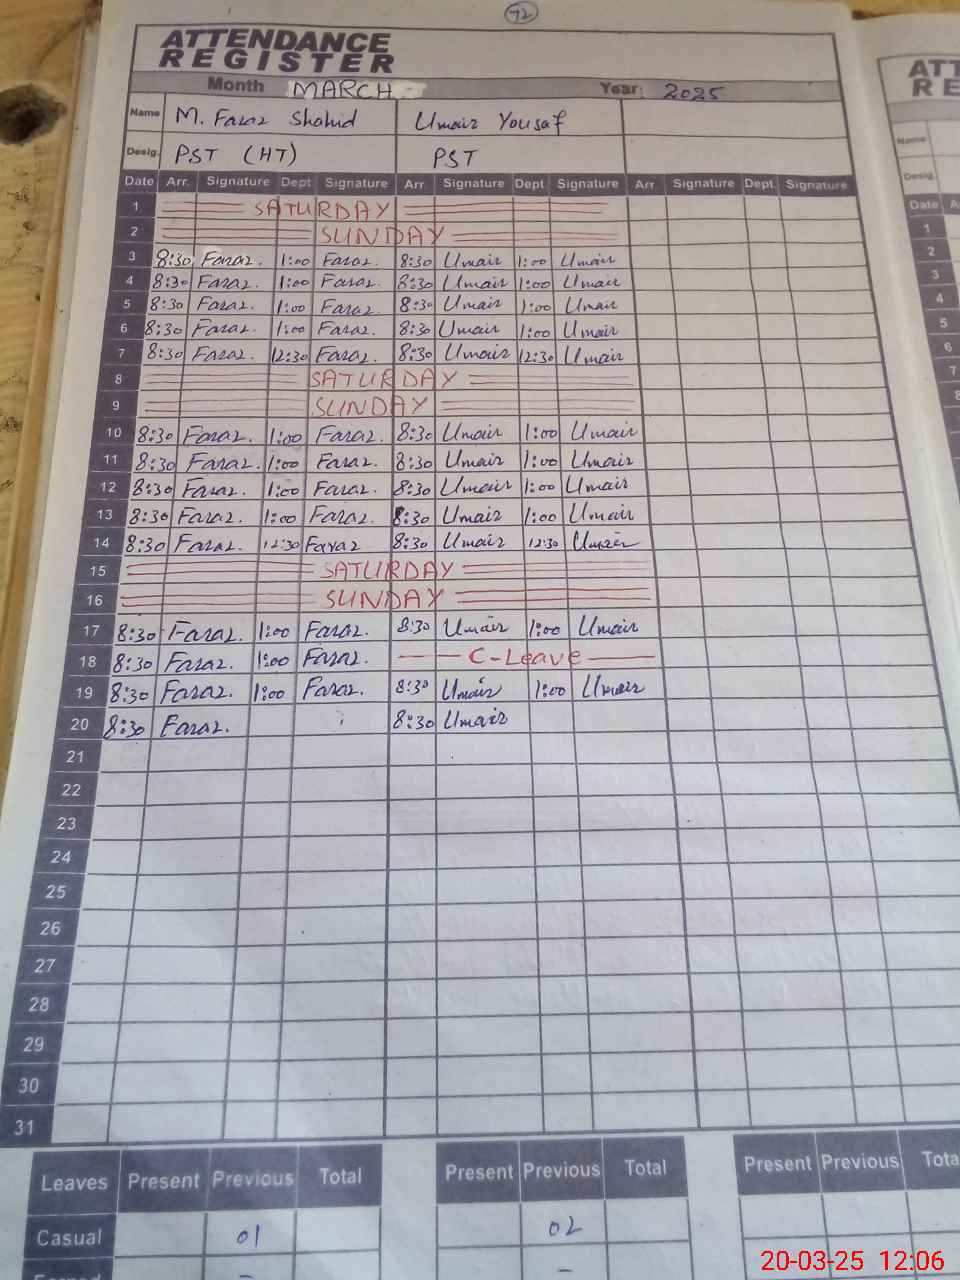 72
ATTENDANCE
REGISTER
Month MARCH Year: 2025
Name M. Faraz Shahid Umair Yousaf
Desig. PST (HT) PST
Date Arr. Signature Dept Signature Arr Signature Dept. Signature Arr. Signature Dept. Signature
1 SATURDAY
2 SUNDAY
3 8:30 Faraz. 1:00 Faraz. 8:30 Umair 1:00 Umair
4 8:30 Faraz. 1:00 Faraz. 8:30 Umair 1:00 Umair
5 8:30 Faraz. 1:00 Faraz. 8:30 Umair 1:00 Umair
6 8:30 Faraz. 1:00 Faraz. 8:30 Umair 1:00 Umair
7 8:30 Faraz. 12:30 Faraz. 8:30 Umair 12:30 Umair
8 SATURDAY
9 SUNDAY
10 8:30 Faraz. 1:00 Faraz. 8:30 Umair 1:00 Umair
11 8:30 Faraz. 1:00 Faraz. 8:30 Umair 1:00 Umair
12 8:30 Faraz. 1:00 Faraz. 8:30 Umair 1:00 Umair
13 8:30 Faraz. 1:00 Faraz. 8:30 Umair 1:00 Umair
14 8:30 Faraz. 12:30 Faraz 8:30 Umair 12:30 Umair
15 SATURDAY
16 SUNDAY
17 8:30 Faraz. 1:00 Faraz. 8:30 Umair 1:00 Umair
18 8:30 Faraz. 1:00 Faraz. C-Leave
19 8:30 Faraz. 1:00 Faraz. 8:30 Umair 1:00 Umair
20 8:30 Faraz. 8:30 Umair
21
22
23
24
25
26
27
28
29
30
31
Leaves Present Previous Total Present Previous Total Present Previous
Casual 01 02
ATT
RE
Name
Desig.
Date A
1
2
3
4
5
6
7
8
20-03-25 12:06